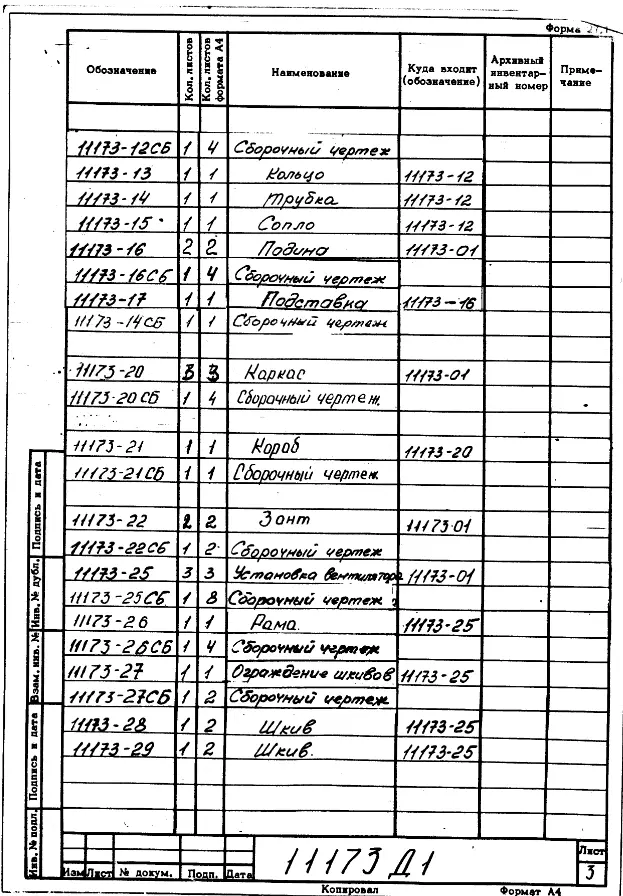 Форма
Обозначение Кол. листов Кол. листов формата А4 Наименование Куда входит (обозначение) Архивный инвентар- ный номер Приме- чание
11173-12СБ 1 4 Сборочный чертеж
11173-13 1 1 Кольцо 11173-12
11173-14 1 1 Трубка 11173-12
11173-15 1 1 Сопло 11173-12
11173-16 2 2 Подина 11173-01
11173-16СБ 1 4 Сборочный чертеж
11173-17 1 1 Подставка 11173-16
11173-14СБ 1 1 Сборочный чертеж
11173-20 3 3 Каркас 11173-01
11173-20СБ 1 4 Сборочный чертеж
11173-21 1 1 Короб 11173-20
11173-21СБ 1 1 Сборочный чертеж
11173-22 2 2 Зонт 11173-01
11173-22СБ 1 2 Сборочный чертеж
11173-25 3 3 Установка вентилятора 11173-01
11173-25СБ 1 8 Сборочный чертеж
11173-26 1 1 Рама. 11173-25
11173-26СБ 1 4 Сборочный чертеж
11173-27 1 1 Ограждение шкивов 11173-25
11173-27СБ 1 2 Сборочный чертеж
11173-28 1 2 Шкив 11173-25
11173-29 1 2 Шкив. 11173-25
Инв. № подл. Подпись и дата Взам. инв. № Инв. № дубл. Подпись и дата
Изм Лист № докум. Подп. Дата
11173 Д1
Лист
3
Копировал Формат А4